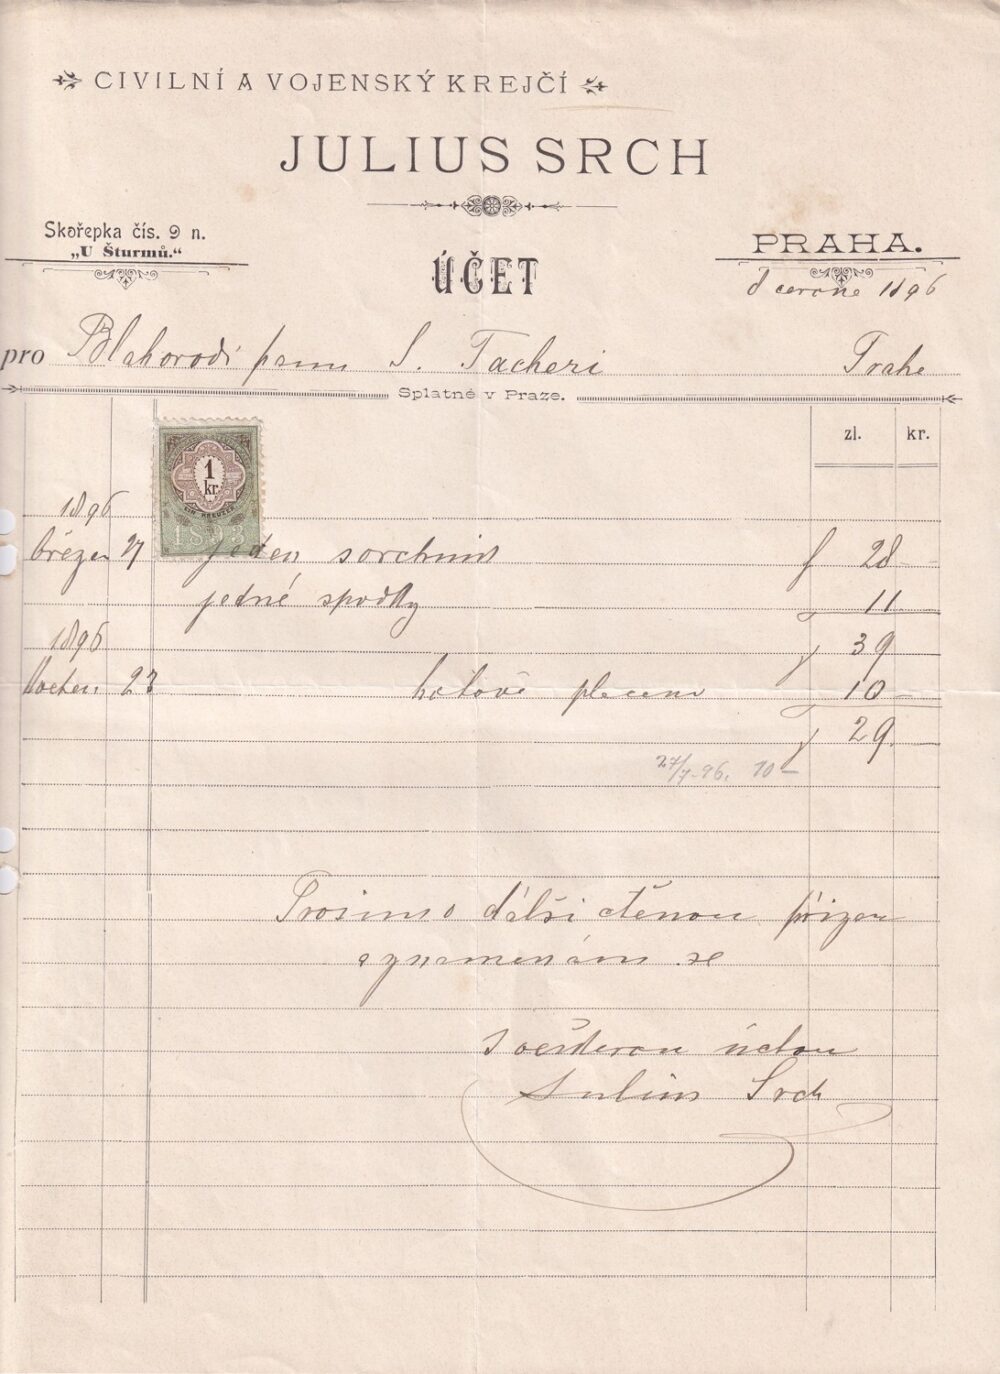 CIVILNÍ A VOJENSKÝ KREJČÍ
JULIUS SRCH
Skořepka čís. 9 n.
„U Šturmů.“
ÚČET
PRAHA.
červne 1896
pro Blahorodí panu S. Tacheri Praha
Splatné v Praze.
zl. kr.
1 kr.
EIN KREUZER
1893
1896
březen 27 jeden svrchník f 28 –
jedné spodky " 11
1896 f 39
23 hotově placeno " 10 –
f 29
27/7 96. 10 –
Prosím o další ctěnou přízeň
a znamenám se
s veškerou úctou
Julius Srch